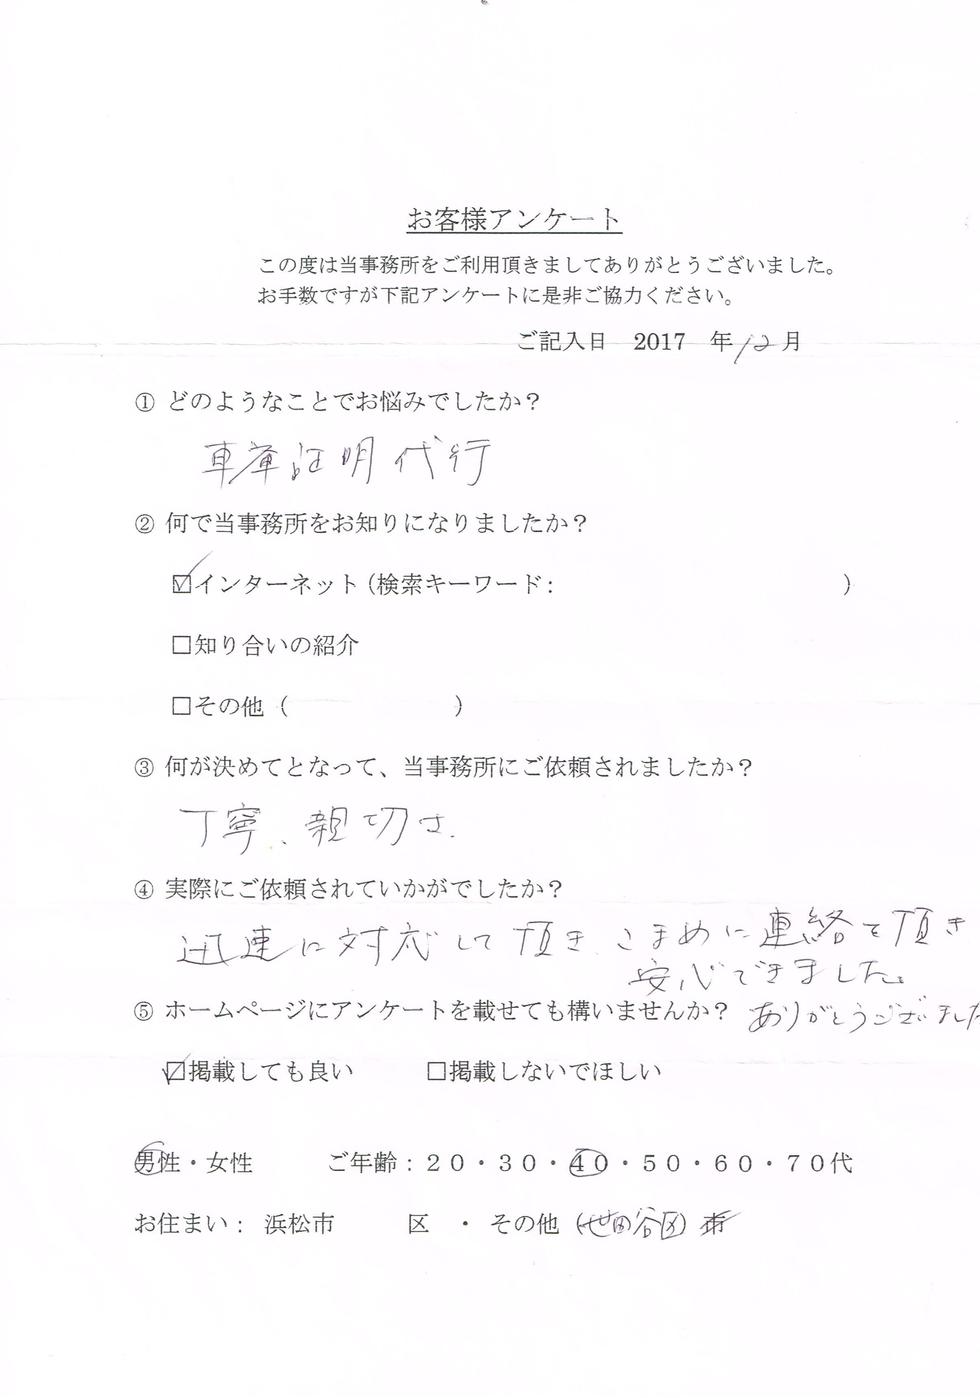 お客様アンケート
この度は当事務所をご利用頂きましてありがとうございました。
お手数ですが下記アンケートに是非ご協力ください。
ご記入日 2017 年 12 月
① どのようなことでお悩みでしたか？
車庫証明代行
② 何で当事務所をお知りになりましたか？
☑インターネット（検索キーワード： ）
□知り合いの紹介
□その他（ ）
③ 何が決めてとなって、当事務所にご依頼されましたか？
丁寧、親切さ.
④ 実際にご依頼されていかがでしたか？
迅速に対応して頂き、こまめに連絡を頂き
安心できました。
⑤ ホームページにアンケートを載せても構いませんか？ ありがとうございました
☑掲載しても良い □掲載しないでほしい
男性・女性 ご年齢：２０・３０・４０・５０・６０・７０代
お住まい： 浜松市 区 ・ その他（世田谷区）市